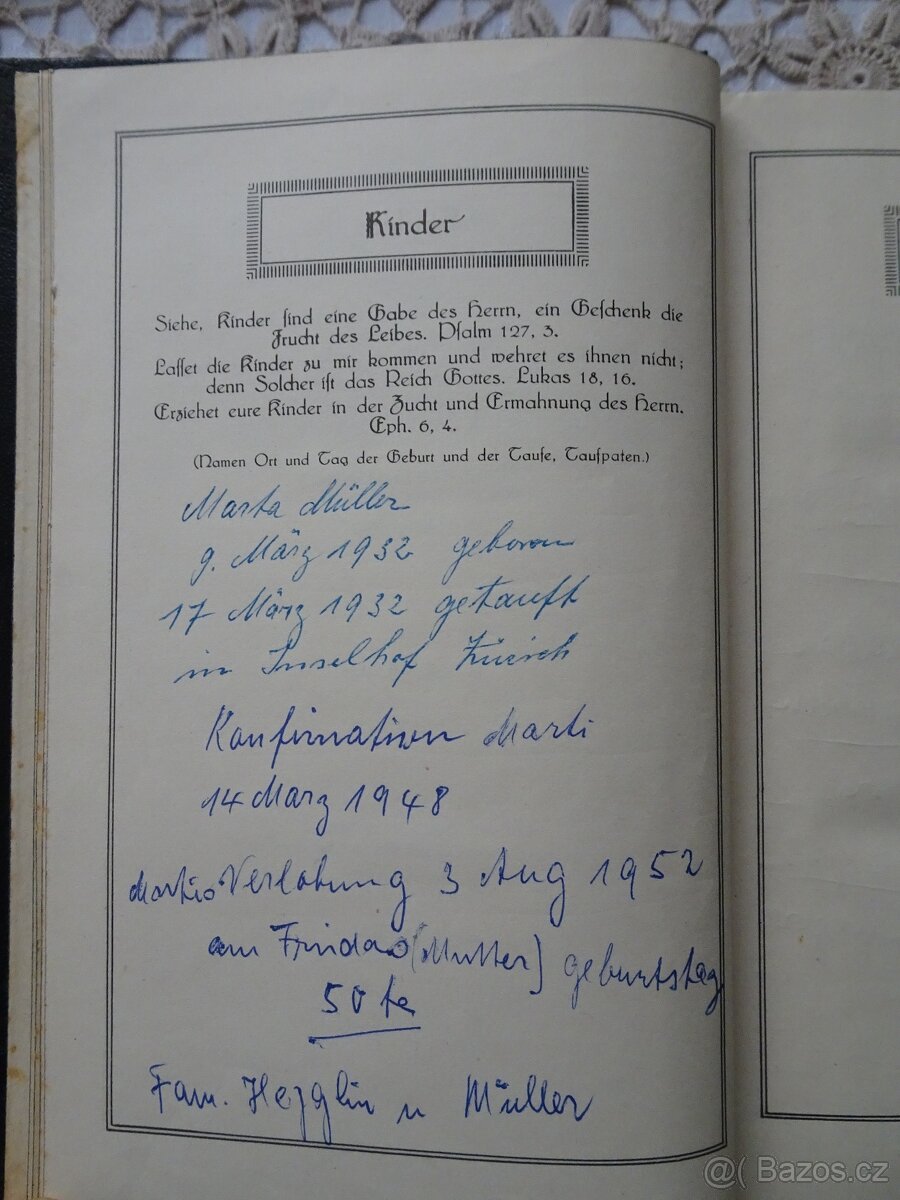 Kinder
Siehe, Kinder sind eine Gabe des Herrn, ein Geschenk die
Frucht des Leibes. Psalm 127, 3.
Lasset die Kinder zu mir kommen und wehret es ihnen nicht;
denn Solcher ist das Reich Gottes. Lukas 18, 16.
Erziehet eure Kinder in der Zucht und Ermahnung des Herrn.
Eph. 6, 4.
(Namen Ort und Tag der Geburt und der Taufe, Taufpaten.)
Marta Müller
9. März 1932 geboren
17 März 1932 getauft
in Inselhof Zürich
Konfirmation Marti
14 Marz 1948
Martis Verlobung 3 Aug 1952
am Fridas (Mutter) geburtstag
50 te
Fam. Hegglin u Müller
@( Bazos.cz